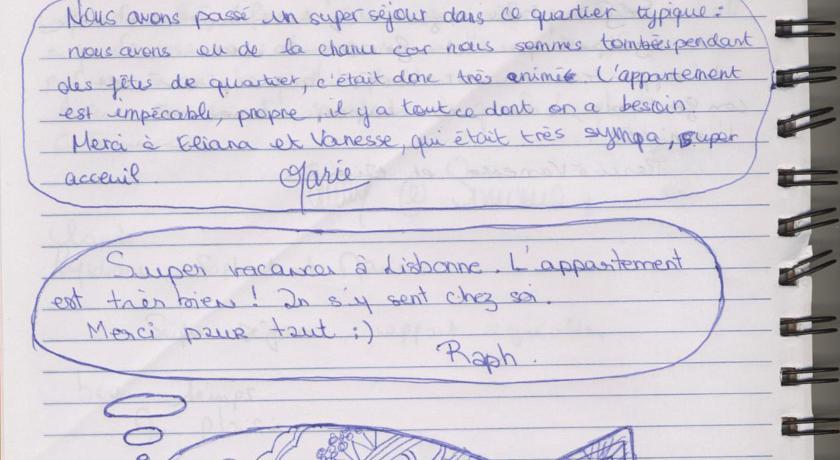 Nous avons passé un super séjour dans ce quartier typique :
nous avons eu de la chance car nous sommes tombés pendant
des fêtes de quartier, c'était donc très animée. L'appartement
est impécable, propre, il y a tout ce dont on a besoin.
Merci à Eliana et Vanesse, qui était très sympa, super
acceuil.
Marie
Super vacances à Lisbonne. L'appartement
est très bien ! On s'y sent chez soi.
Merci pour tout ;)
Raph.